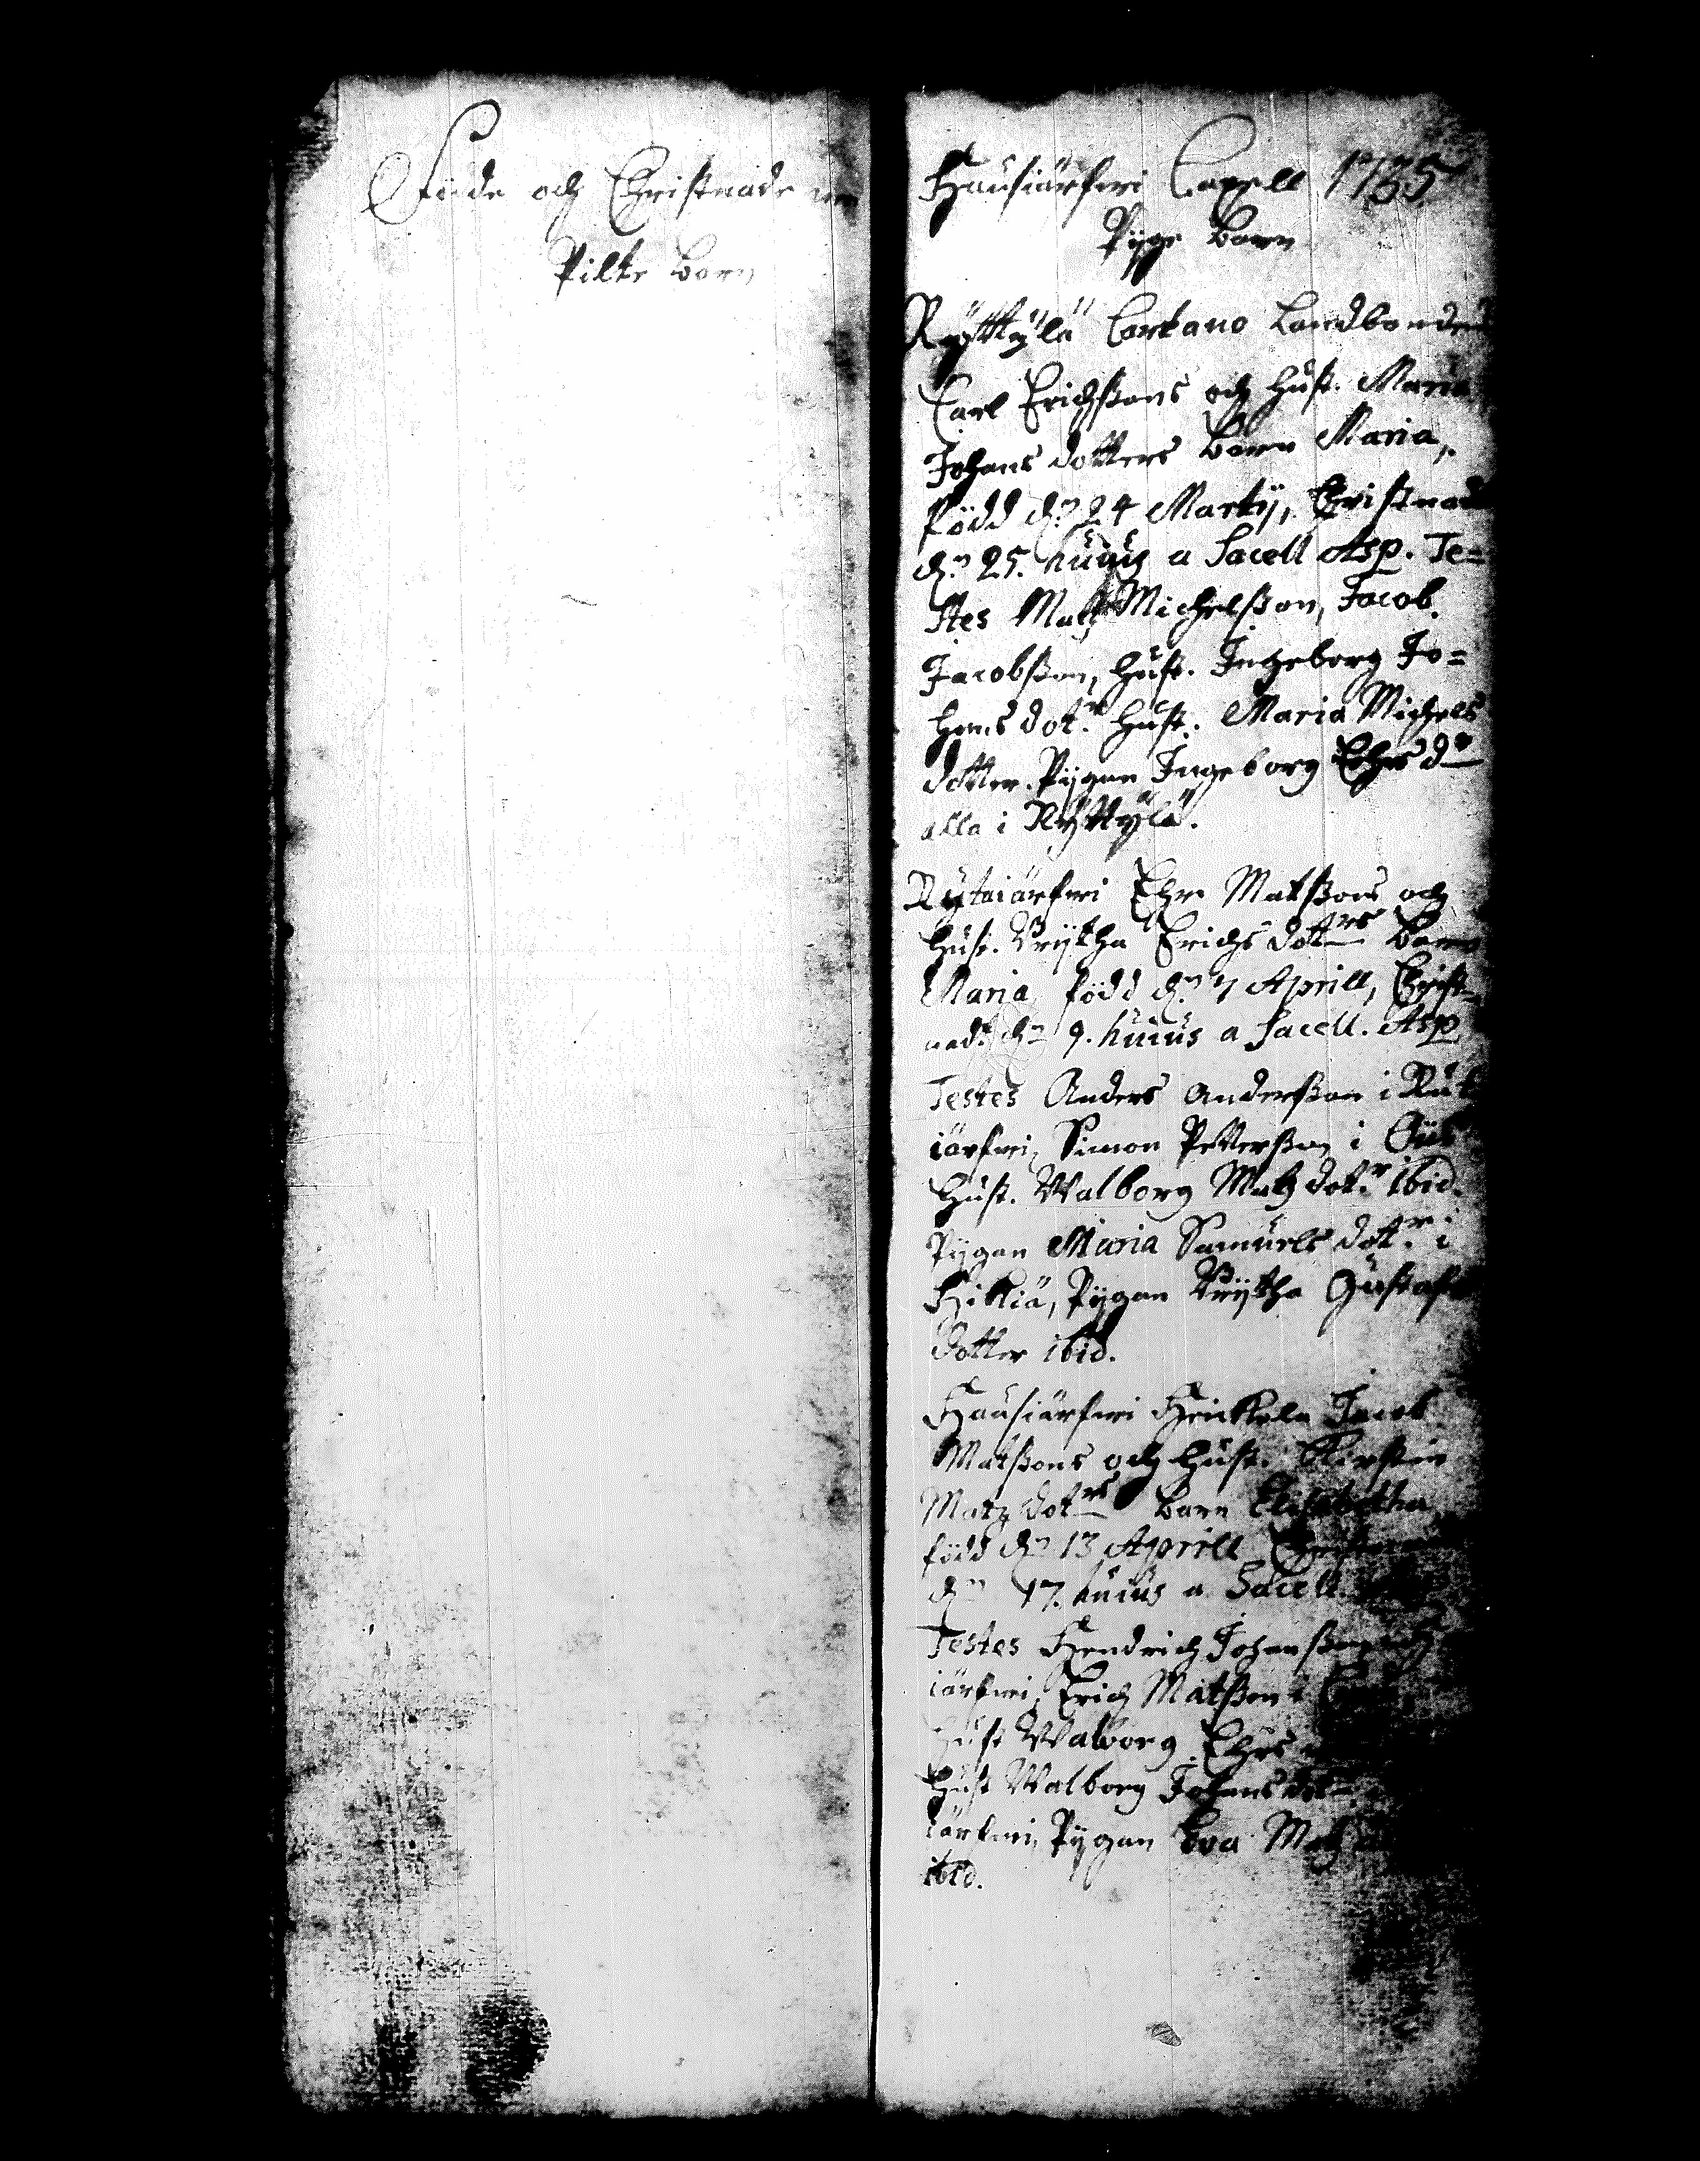 Födde och Christnade
Pilte barn
Hausiärfwi Capell 1735
Pijge barn
Ryttÿlä Cartano Landbonden
Carl Erichßons och hust. Maria
Johans dotters barn Maria,
född d:n 24 Martij, Christnad
d:n 25. huius a Sacell Asp. Te=
stes Matz Michelßon, Jacob
Jacobßon, hust. Ingeborg Jo=
hans dot:r hust. Maria Michels
dotter. Pijgan Ingeborg Ehrs d:r
alla i Ryttÿlä.
Rytaiärfwi Ehr. Matßons och
hust. Brijtha Erichs dot:rs barn
Maria, född d:n 7 Aprill, Christ=
nadt d:n 9. huius a Sacell. Asp
Testes Anders Anderßon i Rut
iärfwi, Simon Petterßon i
hust. Walborg Matz dot:r ibid.
Pijgan Maria Samuels dot:r i
Hikiä, Pijgan Brijtha Gustafs
dotter ibid.
Hausiärfwi Heikkola Jacob
Matßons och hust. Kirstin
Matz dot:rs barn Elisabetha
född d:n 13 Aprill
d:n 17. huius a Sacell.
Testes Hendrich Johanßon
iärfwi, Erich Matßon i
hust Walborg Ehrs
hust Walborg Johans dot:r
iärfwi, Pijgan Eva Matz
ibid.